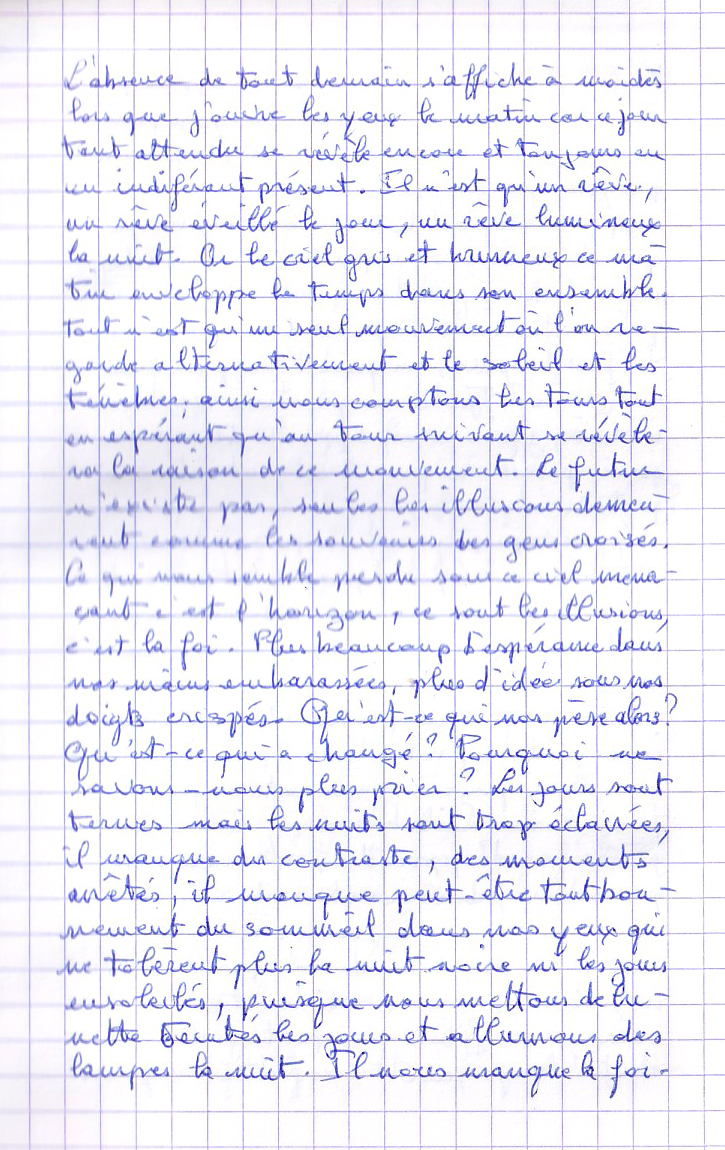 L'absence de tout demain s'affiche à
lors que j'ouvre les yeux le matin car ce jour
tant attendu se révèle encore et toujours en
un indiférant présent. Il n'est qu'un rêve,
un rêve éveillé le jour, un rêve lumineux
la nuit. Or le ciel gris et brumeux ce ma-
tin enveloppe le temps dans son ensemble.
Tout n'est qu'un seul mouvement où l'on re-
garde alternativement et le soleil et les
ténèbres. ainsi nous comptons les tours tout
en espérant qu'au tour suivant se révèle-
ra la raison de ce mouvement. Le futur
n'existe pas, seules les illusions demeu-
rent comme les souvenirs des gens croisés.
Ce qui nous semble perdu sous ce ciel mena-
çant c'est l'horizon, ce sont les illusions,
c'est la foi. Plus beaucoup d'espérance dans
nos mains embarassées, plus d'idée sous nos
doigts crispés. Qu'est-ce qui nos pèse alors?
Qu'est-ce qui a changé? Pourquoi ne
savons-nous plus prier? Les jours sont
ternes mais les nuits sont trop éclairées,
il manque du contraste, des moments
arrêtés, il manque peut-être tout bon-
nement du sommeil dans nos yeux qui
ne tolèrent plus la nuit noire ni les jours
ensoleilés, puisque nous mettons de lu-
nette teintés les jours et allumons des
lampes la nuit. Il nous manque la foi.